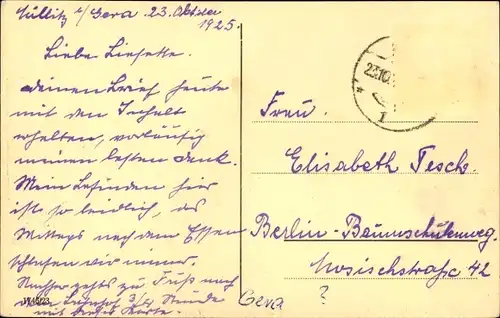 b/Gera 23. Oktober
1925.
Liebe Liesette.
deinen Brief heute
mit dem Inhalt
erhalten, vorläufig
meinen besten Dank.
Mein Befinden hier
ist so leidlich, des
Mittags nach dem Essen
schlafen wir immer.
Nachher gehts zu Fuß nach
dem Bahnhof 3/4 Stunde
mit
23.10.
1
Frau.
Elisabeth Tesch.
Berlin-Baumschulenweg.
Mosischstraße 42
Gera ?